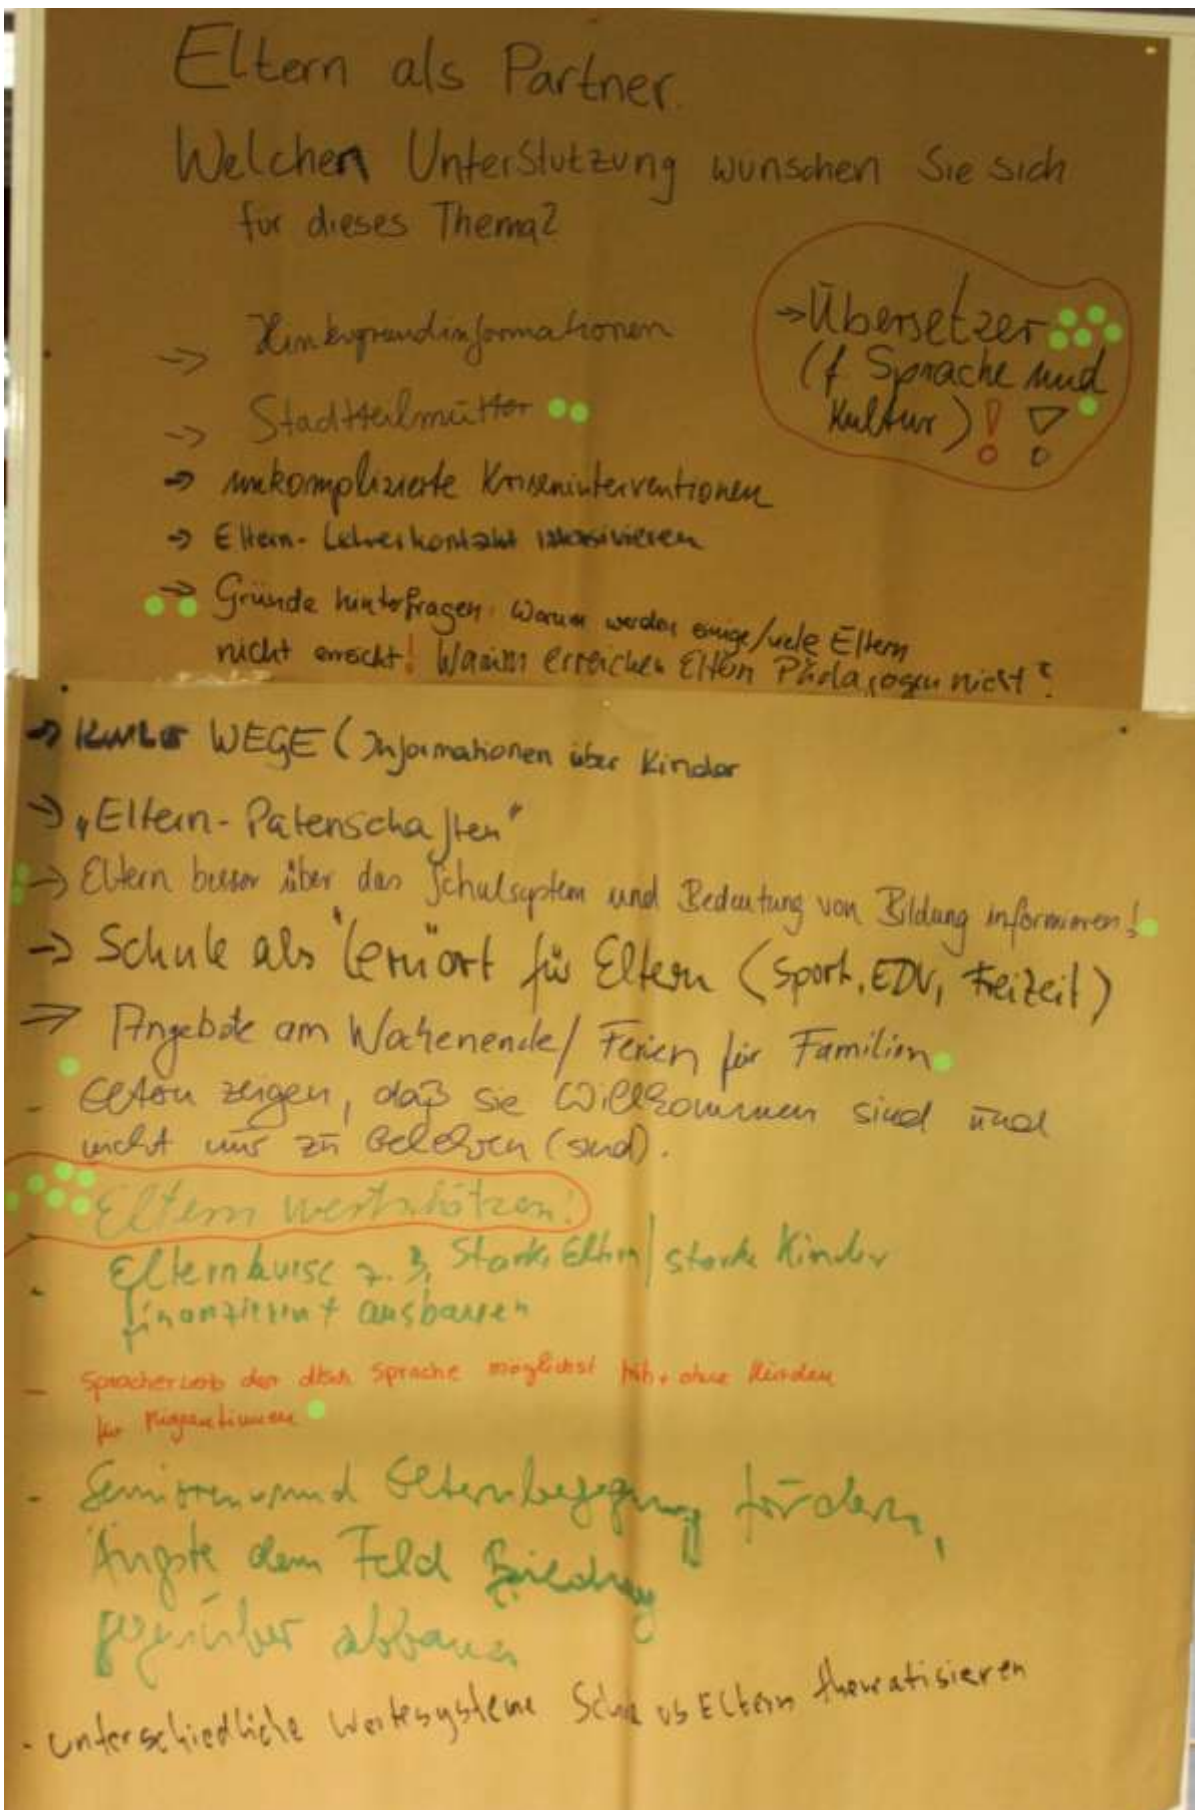 Eltern als Partner.
Welchen Unterstutzung wunschen Sie sich
fur dieses Thema?
→ Hintergrundinformationen
→ Stadtteilmütter
→ unkomplizierte Kriseninterventionen
→ Eltern-Lehrerkontakt intensivieren
→ Gründe hinterfragen: Warum werden einige/viele Eltern
nicht erreicht! Warum erreichen Eltern Pädagogen nicht?
→ Übersetzer
(f Sprache und
Kultur)!!
→ WEGE (Informationen über Kinder
→ „Eltern-Patenschaften"
→ Eltern besser über das Schulsystem und Bedeutung von Bildung informieren!
→ Schule als "Lernort" für Eltern (Sport, EDV, Freizeit)
→ Angebote am Wochenende/ Ferien für Familien
- Eltern zeigen, daß sie Willkommen sind und
nicht nur zu belehren (sind).
- Eltern wertschätzen!
- Elternkurse z.B. Starke Eltern/ starke Kinder
finanzieren + ausbauen
- Spracherwerb der dtsch Sprache möglichst früh + ohne Hürden
für Migrantinnen
- Senioren und Elternbegegnung fördern,
Ängste dem Feld Bildung
gegenüber abbauen
- unterschiedliche Wertesysteme Schule vs Eltern thematisieren